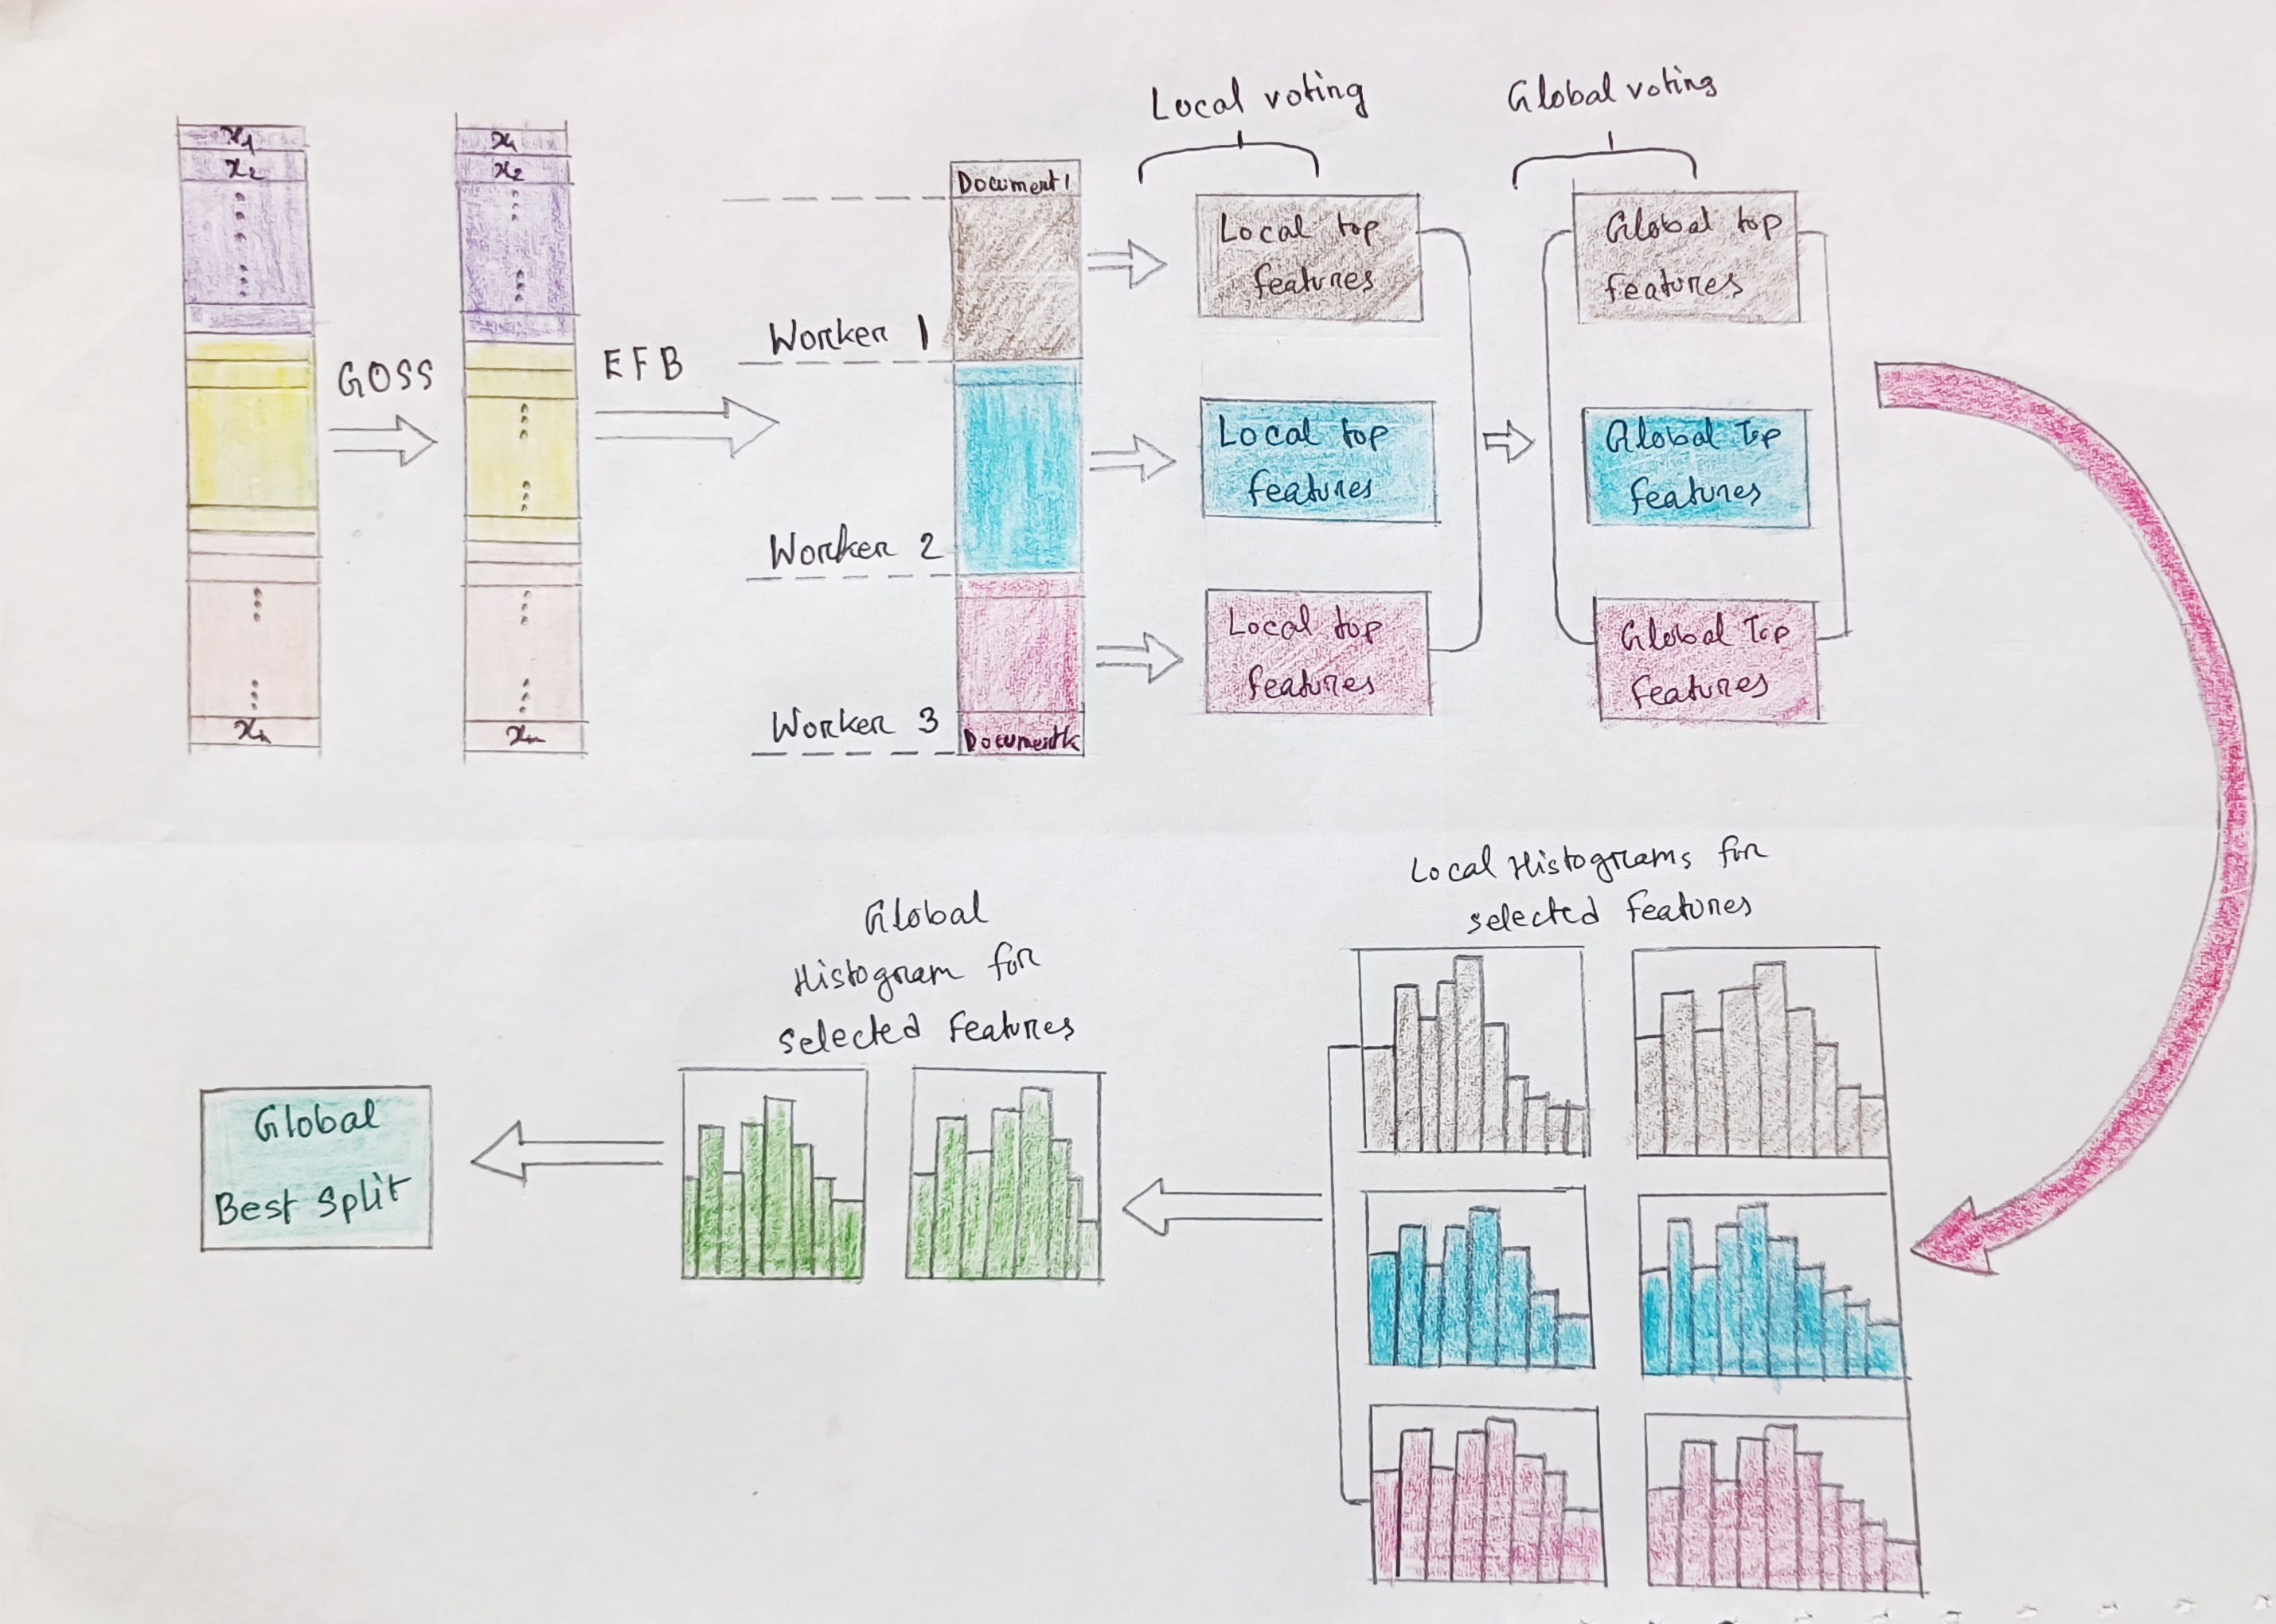 Local voting
Global voting
x1
x2
xn
GOSS
x1
x2
xn
EFB
Worker 1
Worker 2
Worker 3
Document 1
Document k
Local top
features
Local top
features
Local top
features
Global top
features
Global Top
features
Global Top
features
Local Histograms for
selected features
Global
Histogram for
selected features
Global
Best Split